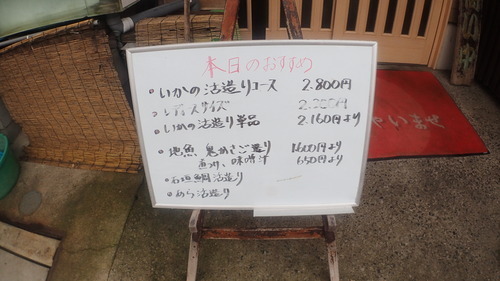 本日のおすすめ
・いかの活造りコース 2.800円
レディースサイズ
・いかの活造り単品 2.160円より
・地魚 鬼かさご造り 1600円より
味噌汁 650円より
・石垣鯛活造り
・あら活造り
ゃいませ